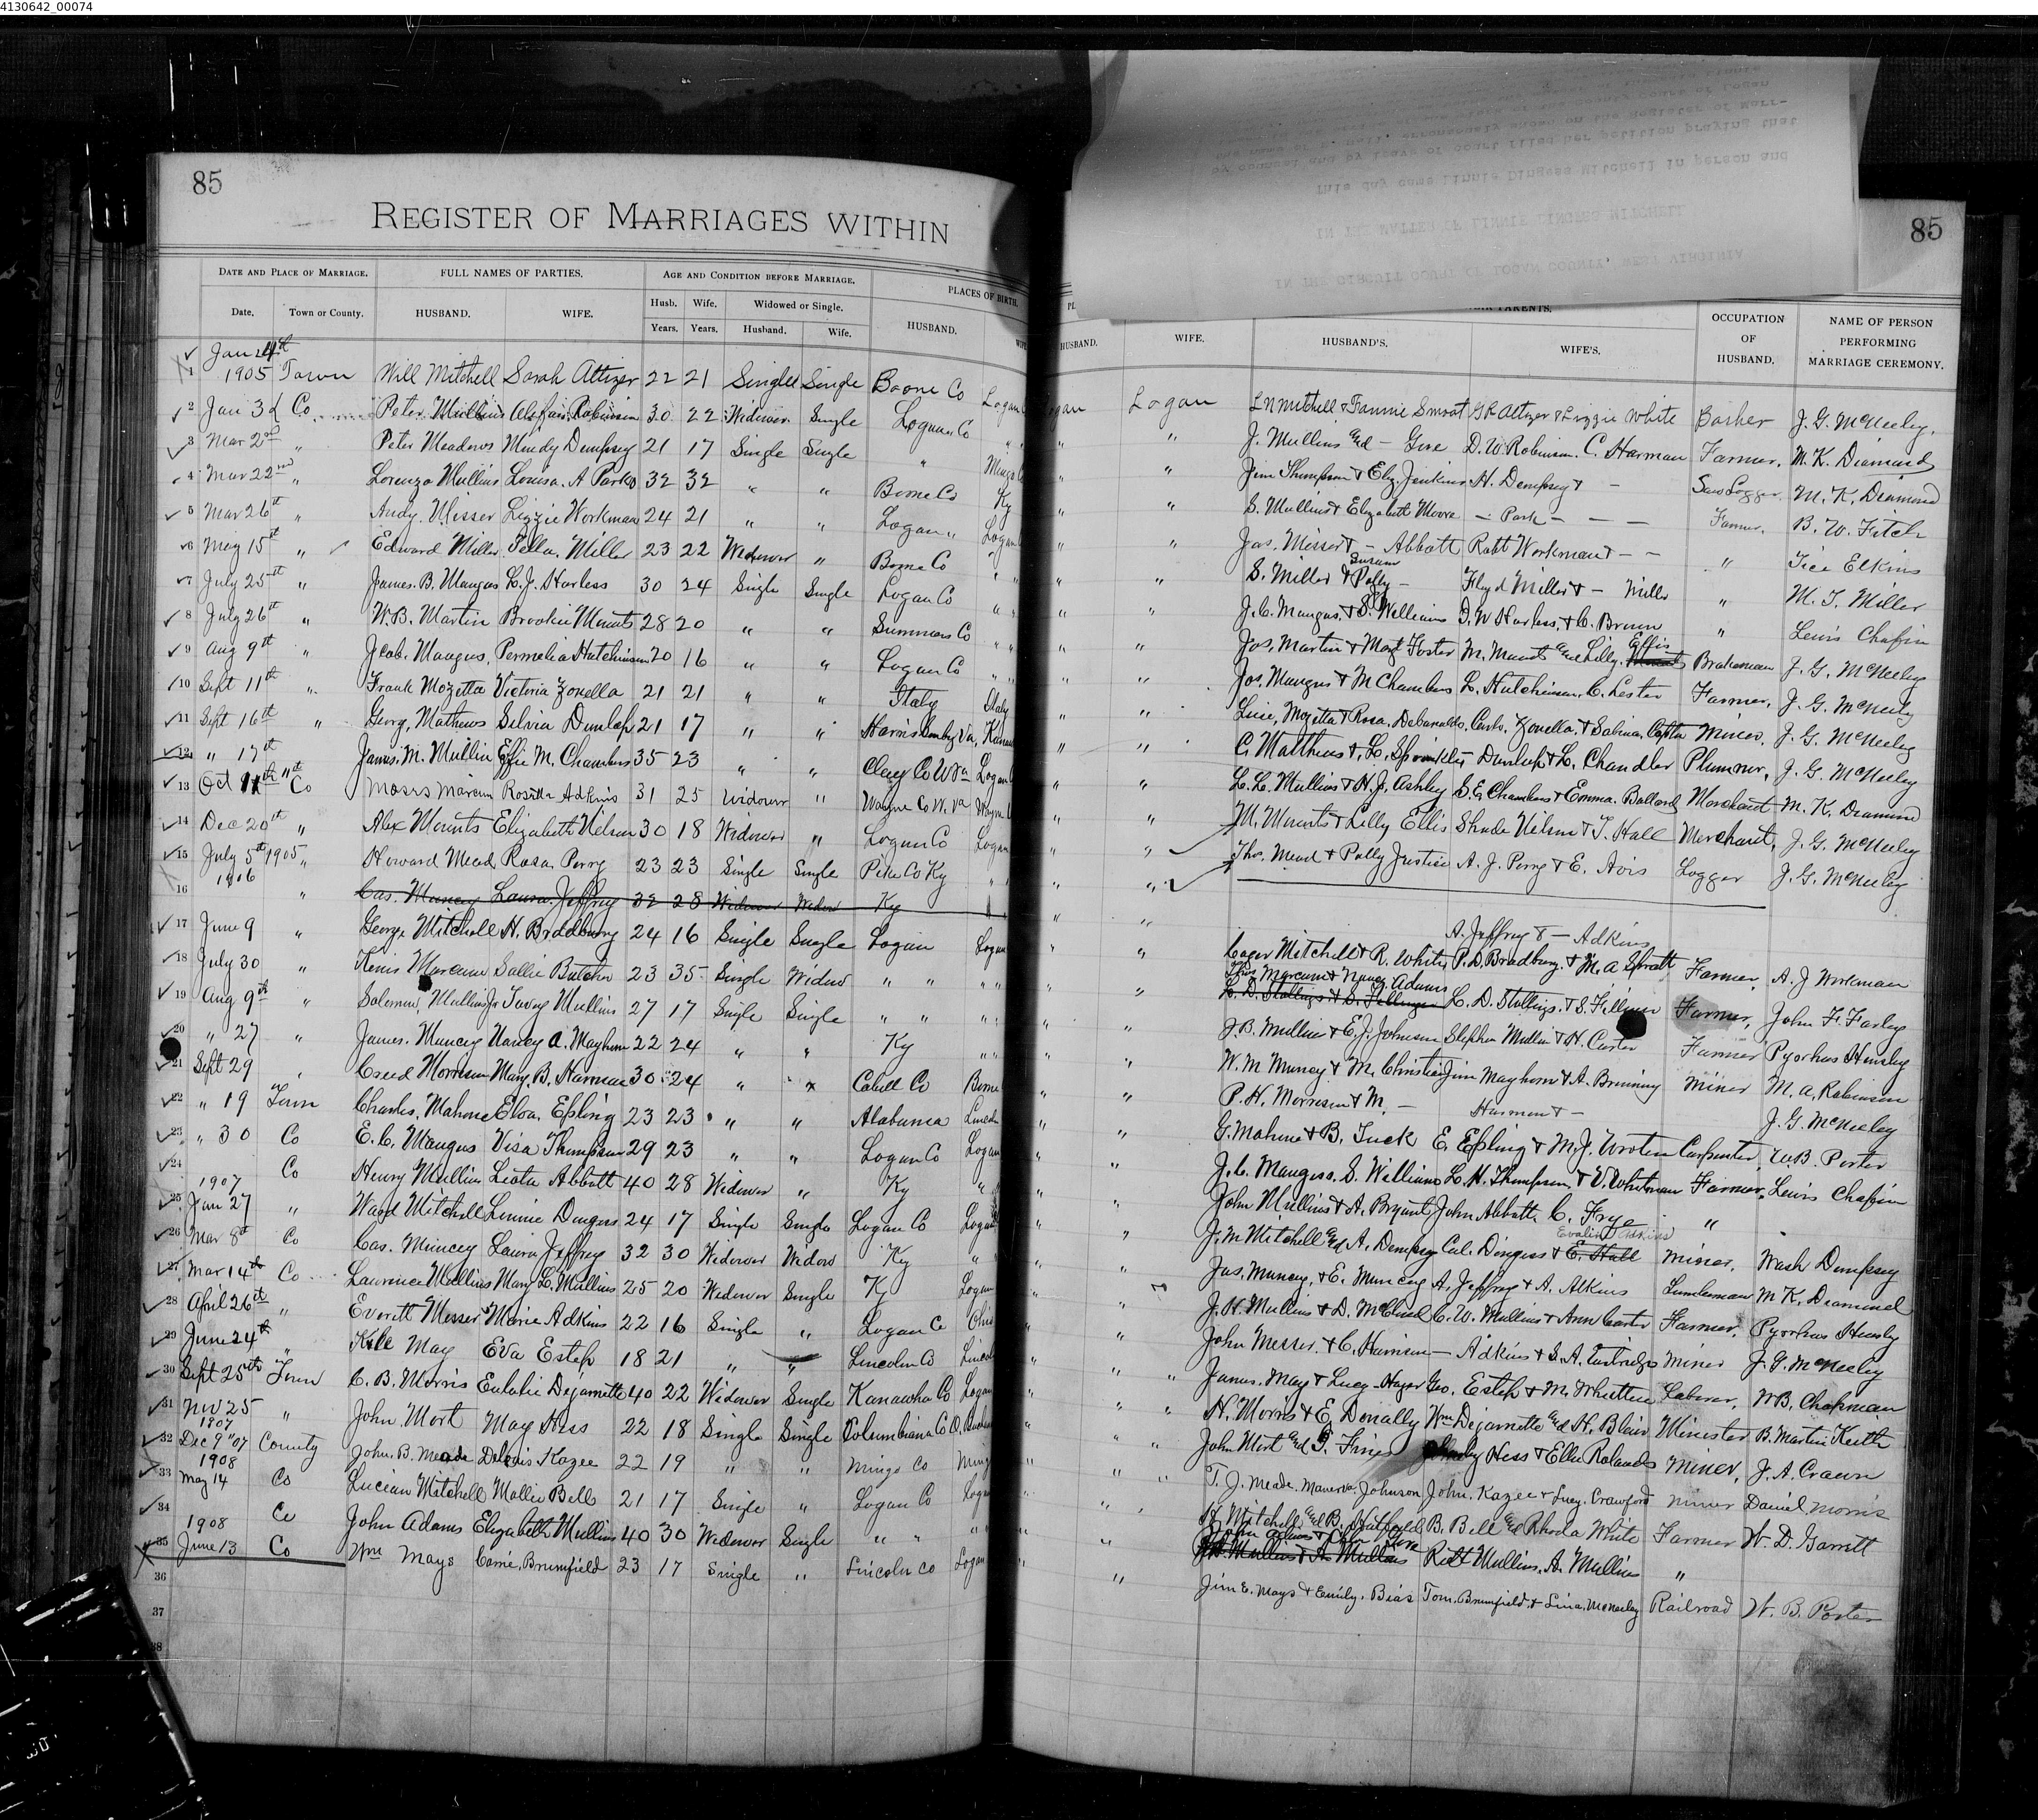 4130642_00074
85
REGISTER OF MARRIAGES WITHIN
85
DATE AND PLACE OF MARRIAGE. FULL NAMES OF PARTIES. AGE AND CONDITION BEFORE MARRIAGE. PLACES OF BIRTH.
Date. Town or County. HUSBAND. WIFE. Husb. Wife. Widowed or Single. HUSBAND. HUSBAND. WIFE. HUSBAND'S. WIFE'S. OCCUPATION OF HUSBAND. NAME OF PERSON PERFORMING MARRIAGE CEREMONY.
Years. Years. Husband. Wife.
1 Jan 4th 1905 Town Will Mitchell Sarah Altizer 22 21 Single Single Boone Co Logan Logan L N Mitchell & Fannie Smoot G R Altizer & Lizzie White Barber J. G. McNeeley.
2 Jan 3d Co. Peter Mullins Robinson 30 22 Widower Single Logan Co " " J. Mullins and - Gore D. W. Robinson. C. Harman Farmer. M. K. Diamond
3 Mar 2nd " Peter Meadows Mindy Dempsey 21 17 Single Single " Mingo " " Jim Thompson & Eliz. Jenkins H. Dempsey & - Saw Logger M. K. Diamond
4 Mar 22nd " Lorenzo Mullins Louisa. A Parks 32 32 " " Boone Co Ky " " S. Mullins & Elizabeth Moore - Park - - - Farmer. B. W. Fitch
5 Mar 26th " Andy. Messer Lizzie Workman 24 21 " " Logan " Logan " " Jas. Messer & - Abbott Robt Workman & - - " Tice Elkins
6 May 15th " Edward Miller Tella. Miller 23 22 Widower " Boone Co " " " S. Miller & Polly - Floyd Miller & - Miller " M. T. Miller
7 July 25th " James. B. Mangus L. J. Harless 30 24 Single Single Logan Co " " " J. C. Mangus. & S. Williams D. W Harless, & C. Brown " Lewis Chafin
8 July 26th " W. B. Martin Brookie Mounts 28 20 " " Summers Co " " " Jos, Martin & Margt Foster M. Mounts and Lilly. Effis Brakeman J. G. McNeeley
9 Aug 9th " Jeab. Mangus, Permelia Hutchinson 20 16 " " Logan Co " " " Jos. Mangus & M Chambers L. Hutchinson. C. Lester Farmer, J. G. McNeeley
10 Sept 11th " Frank Mozetta Victoria Zonella 21 21 " " Italy Italy " " Mozetta & Rosa. Debanaldo. Carlo. Zonella. & Sabina, Miner, J. G. McNeeley
11 Sept 16th " Georg, Mathews Silvia Dunlap 21 17 " " Harrisonburg Va, " " C. Matthews & L. Sprinkle - Dunlap & L. Chandler Plummer, J. G. McNeeley
12 " 17th James. M. Mullin Effie M. Chambers 35 23 " " Clay Co W Va Logan " " L. L. Mullins & H. J, Ashley S. E. Chambers & Emma. Ballard Merchant M. K. Diamond
13 Oct 11th Co Moses Marcum Rosilla Adkins 31 25 Widower " Wayne Co W. Va Wayne
14 Dec 20th " Alex Mounts Elizabeth Nelson 30 18 Widower " Logan Co Logan " M. Mounts & Lilly Ellis Shade Nelson & T. Hall Merchant, J. G. McNeeley
15 July 5th 1905 " Howard Mead Rosa. Perry 23 23 Single Single Pike Co Ky " " Thos. Mead & Polly Justice A. J. Perry & E. Avis Logger J. G. McNeeley
1906
16 " Cas. Muncey Laura. Jeffrey 32 28 Widower Widow Ky " " A. Jeffrey & - Adkins
17 June 9 " George Mitchell H. Bradbury 24 16 Single Single Logan Logan " Cager Mitchell & R. White P. D. Bradbury. & M. A Spratt Farmer, A. J Workman
18 July 30 " Kenis Marcum Sallie Butcher 23 35 Single Widow " " " " Thos Marcum & Nancy Adams L. D. Stallings & S. Fillinger Farmer, John F. Farley
19 Aug 9th " Solomon, Mullins Jr Tavey Mullins 27 17 Single Single " " " " J. B. Mullins & E. J. Johnson Stephen Mullin & H. Carter Farmer Pyorhus Hensley
20 " 27 " James. Muncey Nancy A. Mayhorn 22 24 " " Ky " " W. M Muncy & M. Christian Jim Mayhorn & A. Browning Miner M. A, Robinson
21 Sept 29 Creed Morrison Mary. B. Harman 30 24 " " Cabell Co Boone P. H. Morrison & M. - Harman & - J. G. McNeeley
22 " 19 Town Charles. Mahone Eloa. Epling 23 23 " " Alabama Lincoln " G. Mahone & B. Tuck E. Epling & M. J. Wooten Carpenter, W. B. Porter
23 " 30 Co E. C. Mangus Visa Thompson 29 23 " " Logan Co Logan " J. C. Mangus. S. Williams L. H. Thompson & V. Whitman Farmer, Lewis Chafin
24 Co Henry Mullins Abbott 40 28 Widower " Ky " " John Mullins & A. Bryant John Abbott C. Frye "
1907
25 Jan 27 " Ward Mitchell Linnie Dingess 24 17 Single Single Logan Co Logan " J. M Mitchell and A. Dempsey Cal. Dingess & Evaline Adkins Miner, Wash Dempsey
26 Mar 8th Co Cas. Muncey Laura Jeffrey 32 30 Widower Widow Ky " " Jas. Muncey, & E. Muncey A. Jeffrey & A. Atkins Lumberman M K. Diamond
27 Mar 14th Co Laurence Mullins Mary L. Mullins 25 20 Widower Single Ky Logan " J. H. Mullins & D. C. W. Mullins & Ann Carter Farmer. Pyorhus Hensley
28 April 26th " Everett Messer Marie Adkins 22 16 Single " Logan Co Ohio " John Messer. & C. Harrison - Adkins & S. A. Miner J. G. McNeeley
29 June 24th " Kile May Eva Estep 18 21 " " Lincoln Co Lincoln " James. May & Lucy. Hager Geo, Estep & M. Whitten Laborer, W B, Chapman
30 Sept 25th Town C. B. Morris Eulalie Dejarnette 40 22 Widower Single Kanawha Co Logan " N. Morris & E, Donally Wm Dejarnette and H. Blair Minister B. Martin Keith
31 Nov 25 1907 " John Mort May Hess 22 18 Single Single Columbiana Co O. " John Mort and Hess & Ella Rolands Miner, J. A. Crawn
32 Dec 9" 07 County John. B. Meade Kazee 22 19 " " Mingo Co Mingo " T. J. Meade. Johnson John, Kazee & Lucy. Crawford Miner Daniel Morris
1908
33 May 14 Co Lucian Mitchell Mollie Bell 21 17 Single " Logan Co Logan " Mitchell and B. Hatfield B. Bell and Rhoda White Farmer W. D. Garrett
34 1908 Co John Adams Elizabeth Mullins 40 30 Widower Single " " " Mullins, A. Mullins "
35 June 13 Co Wm Mays Carrie, Brumfield 23 17 Single " Lincoln Co Logan " Jim E. Mays & Emily. Bias Tom. Brumfield, & Lina. McNeeley Railroad W. B. Porter
36
37
38